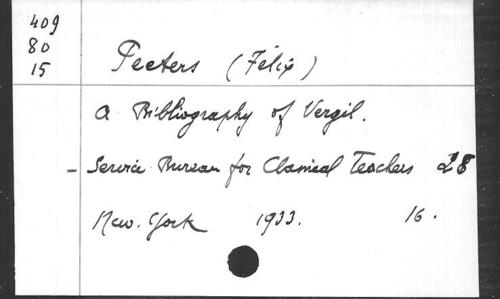 409
80
15
Peeters (Félix)
A Bibliography of Vergil.
- Service Bureau for Classical Teachers 28
New-York 1933. 16.